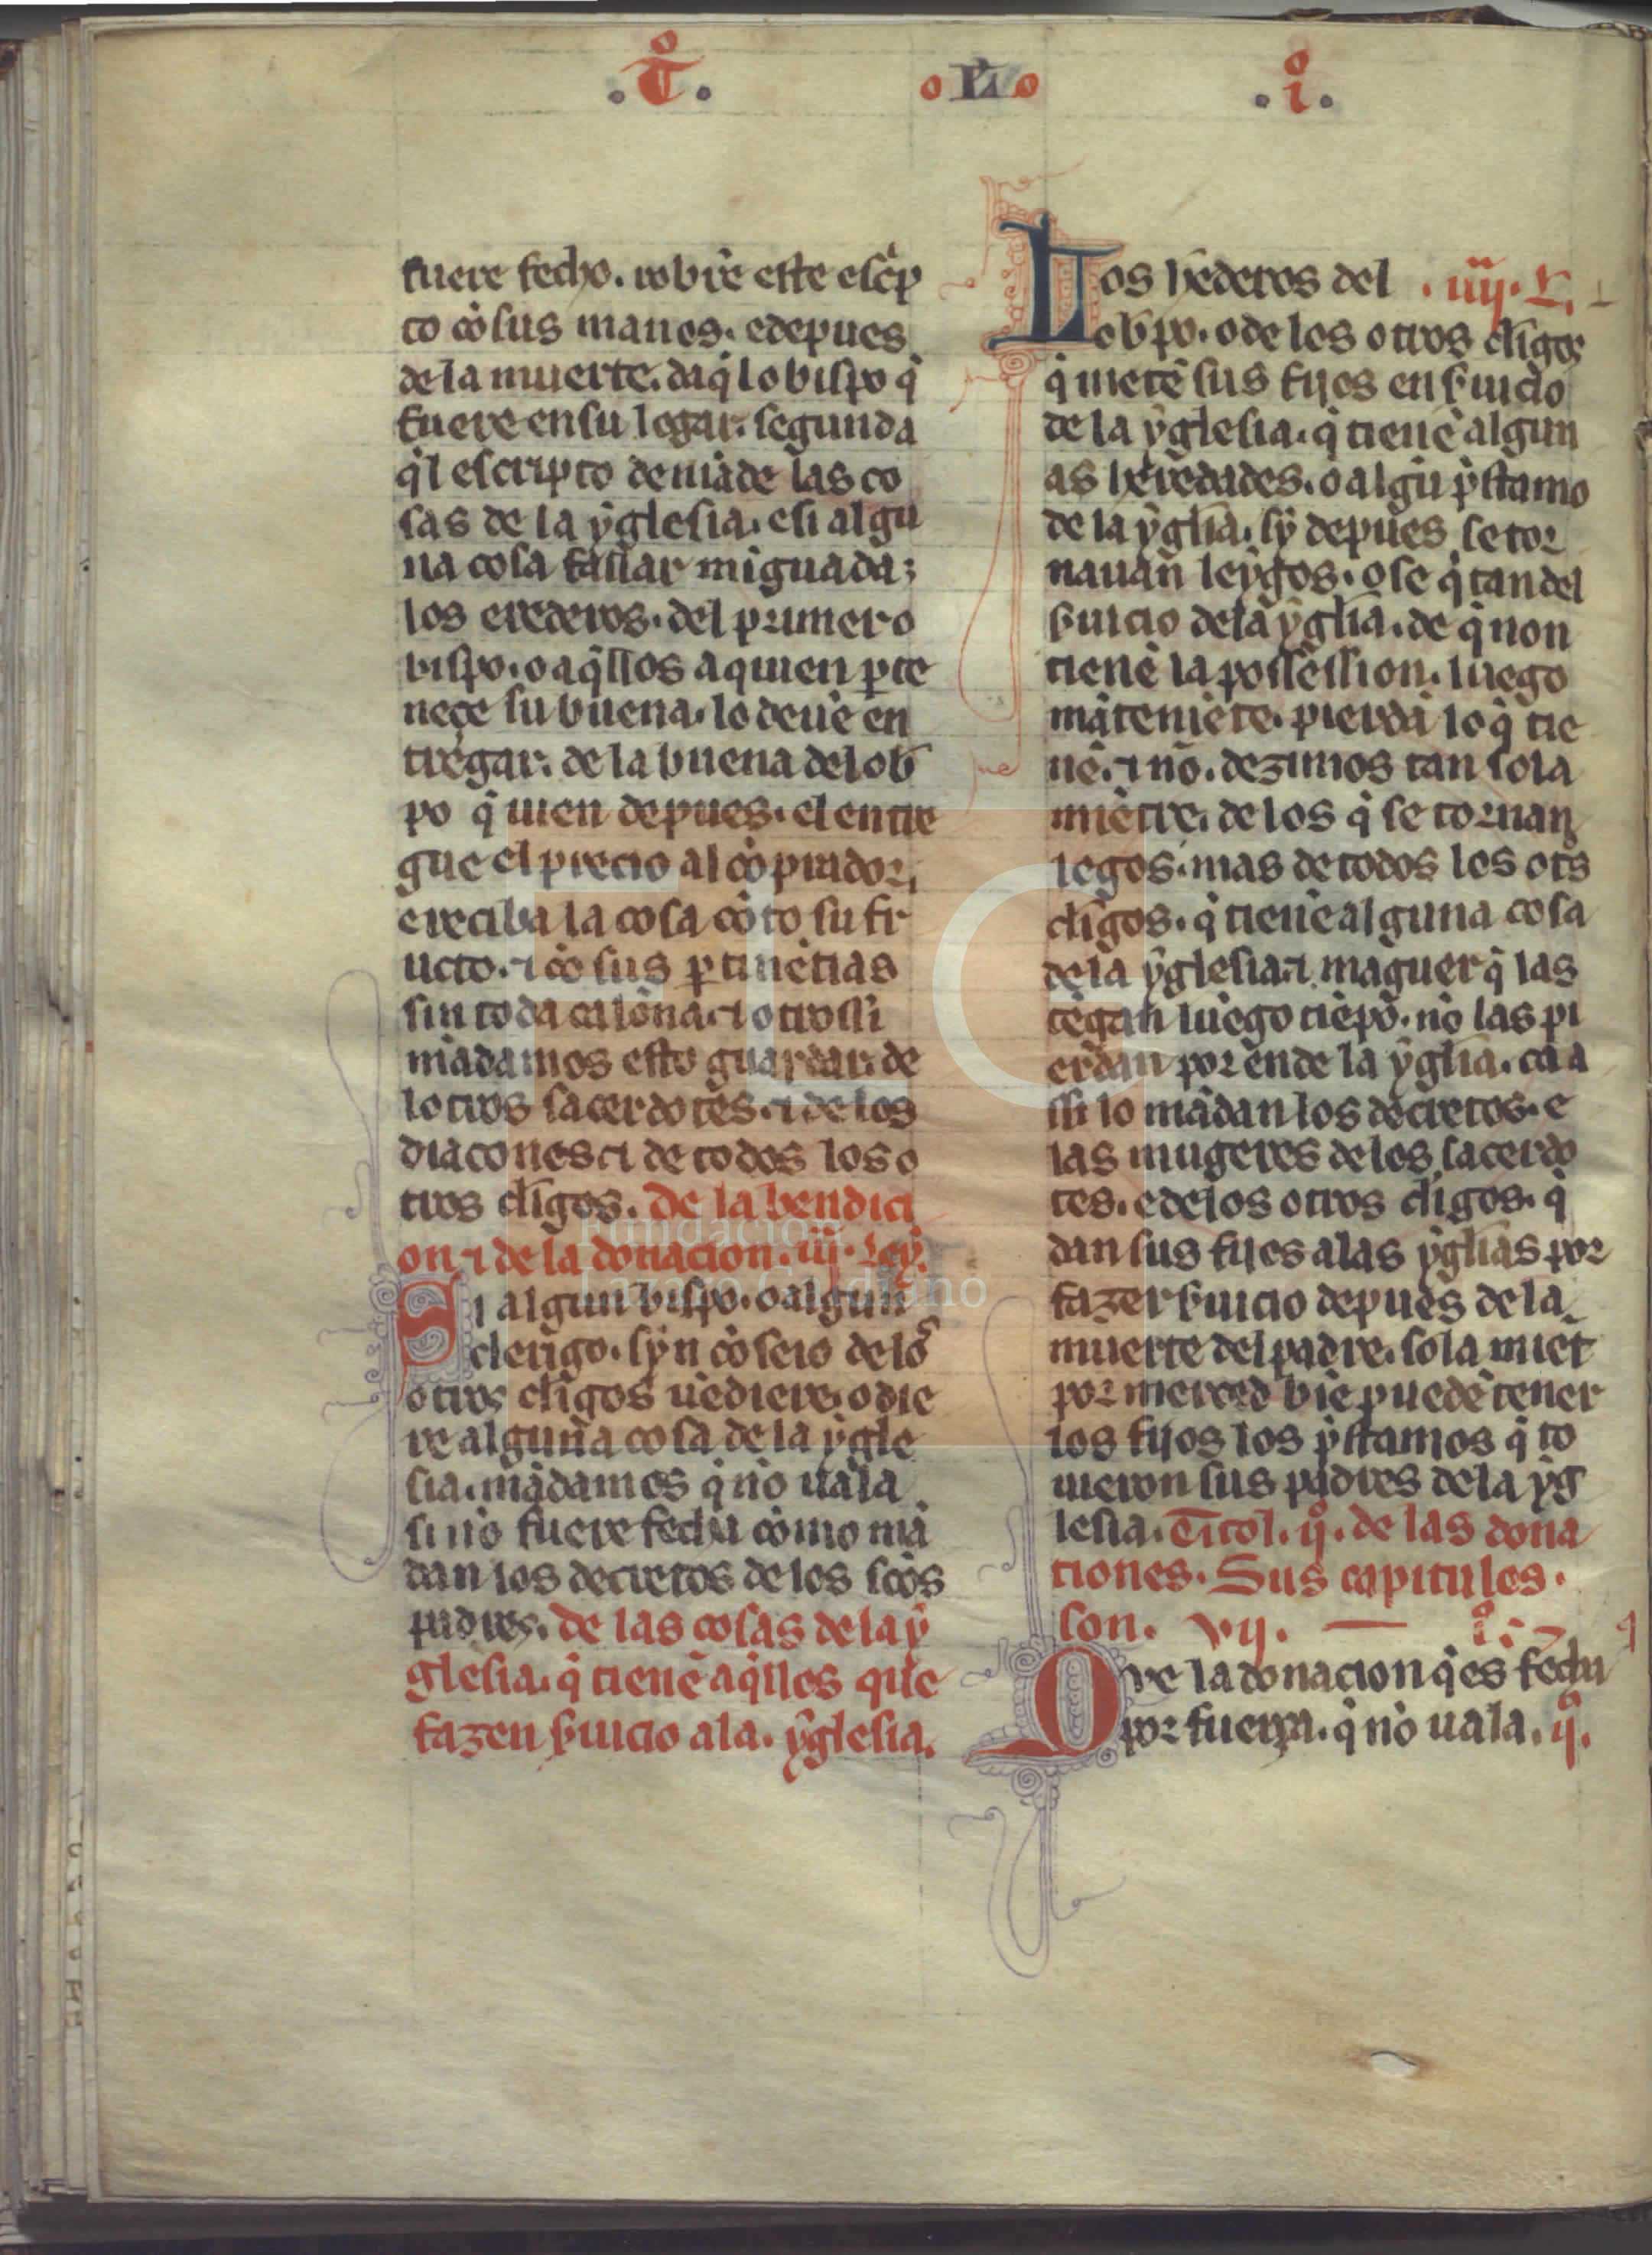 .T̊. .L. .i̊.
fuere fecho. robre este escⁱp
to cō sus manos. e depues
de la muerte. daq̄l obispo q̄
fuere en su logar. segunda
q̄l escripto demāde las co
sas de la ẏglesia. e si algu
na cosa fallar miguada;
los erederos. del primero
bispo. o aq̄llos a quien ꝑte
neçe su buena. lo deuē en
tregar. de la buena del ob̄
po q̄ uien depues. el entre
gue el precio al cōprador.
e reciba la cosa cō to su fr
ucto. ⁊ cō sus ꝑtinētias
sin toda calōna. ⁊ otrossi
mādamos esto guardar. de
lotros sacerdotes. ⁊ de los
diacones ⁊ de todos los o
tros cl̄igos. De la bendici
on ⁊ de la donacion. iij. Ley.
Si algun bispo. o algun
clerigo. sẏn cōseio de los
otros cl̄igos uēdiere. o die
re alguna cosa de la ẏgle
sia. mādamos q̄ nō uala
si nō fuere fecha cōmo mā
dan los decretos de los scōs
padres. de las cosas de la ẏ
glesia. q̄ tienē aq̄llos que
fazen s̄uicio a la. ẏglesia.
Los hēderos del .iiij. L.
ob̄po. o de los otros cl̄igos
q̄ metē sus fijos en s̄uicio
de la ẏglesia. q̄ tienē algun
as heredades. o algū p̄stamo
de la ẏgl̄ia. sẏ depues se tor
nauan leẏgos. o se q̄tan del
s̄uicio de la ẏgl̄ia. de q̄ non
tienē la possession. luego
māteniēte. pierda lo q̄ tie
nē. ⁊ nō. dezimos tan sola
miētre. de los q̄ se tornan
legos. mas de todos los ots
cl̄igos. q̄ tienē alguna cosa
de la ẏglesia ⁊ maguer q̄ las
tēgan luego tiēpo. nō las pi
erdan por ende la ẏgl̄ia. ca a
ssi lo mādan los decretos. e
las mugeres de los sacerdo
tes. e de los otros cl̄igos. q̄
dan sus fijos a las ẏgl̄ias por
fazer s̄uicio depues de la
muerte del padre. sola miet̄
por merced biē puedē tener
los fijos los p̄stamos q̄ to
uieron sus padres de la ẏg
lesia. Titol. ij̊. de las dona
tiones. Sus capitulos.
son. vij. i̊.
Que la donacion q̄ es fecha
por fuerça. q̄ nō uala. ij̊.
Fundación
Lázaro Galdiano